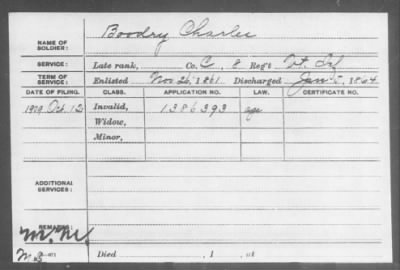 NAME OF SOLDIER: Boodry Charles
SERVICE: Late rank, Co. C, 8 Reg't Vt. Inf
TERM OF SERVICE: Enlisted Nov 26, 1861 Discharged Jan 5, 1864
DATE OF FILING. CLASS. APPLICATION NO. LAW. CERTIFICATE NO.
Oct. 12 Invalid, 1386393 age
Widow,
Minor,
ADDITIONAL SERVICES:
REMARKS:
Died , 1 , at